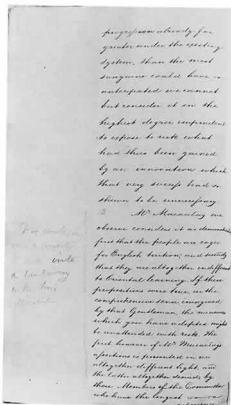 progression already far
greater under the existing
system, than the most
sanguine could have
anticipated we cannot
but consider it in the
highest degree inexpedient
to expose to risk what
had thus been gained
by an innovation which
that very success tended
shown to be unnecessary
2 Mr Macaulay we
observe considers it as demonstrated
first that the people are eager
for English tuition; and secondly
that they are altogether indifferent
to Oriental learning. If these
propositions were true in the
comprehensive sense imagined
by that Gentleman, the measures
which you have adopted might
be unattended with risk. The
first however of Mr Macaulay's
assertions is presented in an
altogether different light, and
the latter altogether denied by
those Members of the Committee
who have the largest